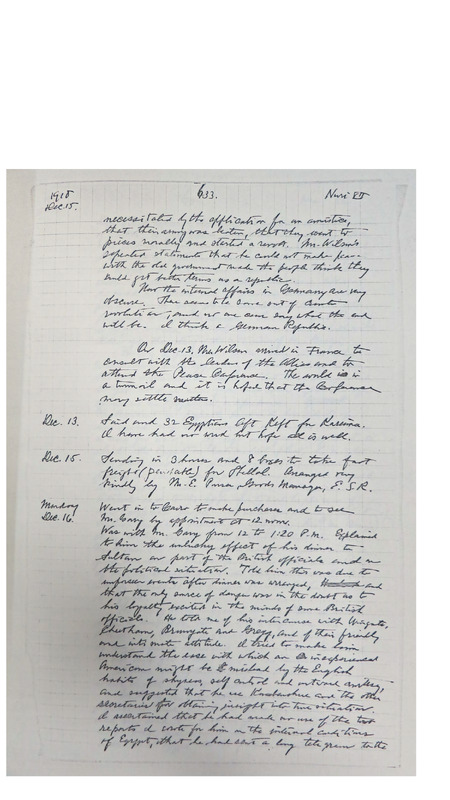 1918 633. Nuri 85
Dec. 15.
necessitated by the application for an armistice,
that their army was beaten, that they went to
pieces morally and started a revolt. Mr. Wilson's
repeated statements that he could not make peace
with the old government made the people think they
could get better terms as a republic.
Now the internal affairs in Germany are very
obscure. There seems to be some sort of
revolution, and no one can say what the end
will be. I think a German Republic.
On Dec. 13, Mr. Wilson arrived in France to
consult with the leaders of the Allies and to
attend the Peace Conference. The world is in
a turmoil and it is hoped that the Conference
may settle matters.
Dec. 13. Said and 32 Egyptians left Keft for Kareima.
I have had no word but hope all is well.
Dec. 15. Sending in 3 horses and 8 boxes to take fast
freight (perishable) for Shellal. Arranged very
kindly by Mr. E. Goods Manager, E. S. R.
Monday Went in to Cairo to make purchases and to see
Dec. 16. Mr. Gary by appointment at 12 noon.
Was with Mr. Gary from 12 to 1:20 P.M. Explained
to him the unlucky effect of his dinner to
Sultan on part of the British officials and on
the political situation. Told him this was due to
unforeseen events after dinner was arranged, and
that the only source of danger was in the doubt as to
his loyalty excited in the minds of some British
officials. He told me of his intercourse with Wingate,
Cheetham, Brunyate and Gregg, and of their friendly
and intimate attitude. I tried to make him
understand the ease with which an inexperienced
American might be misled by the English
habits of shyness, self control and outward
and suggested that he use Knabenshue and the other
secretaries for obtaining insight into true situation.
I ascertained that he had made no use of the
reports I wrote for him on the internal conditions
of Egypt, that he had sent a long telegram to the